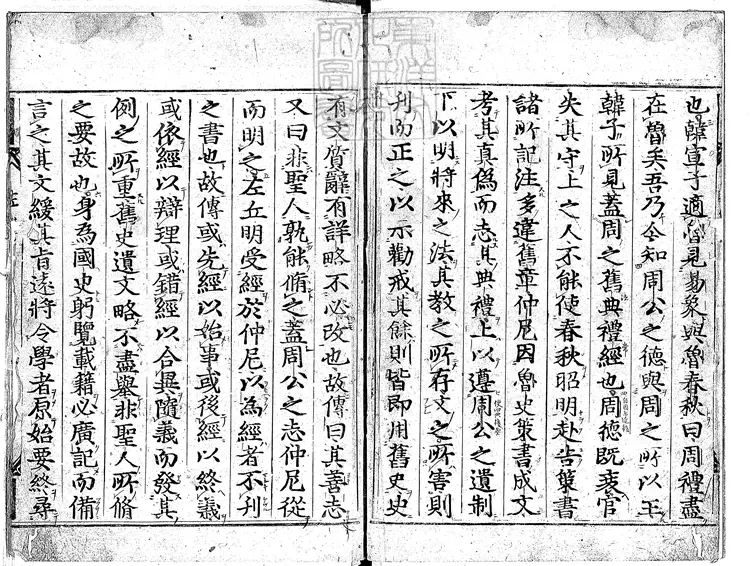 也韓宣子適魯見易象與魯春秋曰周禮盡
在魯矣吾乃今知周公之德與周之所以王
韓子所見蓋周之舊典禮經也周德既衰官
失其守上之人不能使春秋昭明赴告策書
諸所記注多違舊章仲尼因魯史策書成文
考其真偽而志其典禮上以遵周公之遺制
下以明將來之法其教之所存文之所害則
刊而正之以示勸戒其餘則皆即用舊史史
有文質辭有詳略不必改也故傳曰其善志
又曰非聖人孰能脩之蓋周公之志仲尼從
而明之左丘明受經於仲尼以為經者不刊
之書也故傳或先經以始事或後經以終義
或依經以辯理或錯經以合異隨義而發其
例之所重舊史遺文略不盡舉非聖人所脩
之要故也身為國史躬覽載籍必廣記而備
言之其文緩其旨遠將令學者原始要終尋